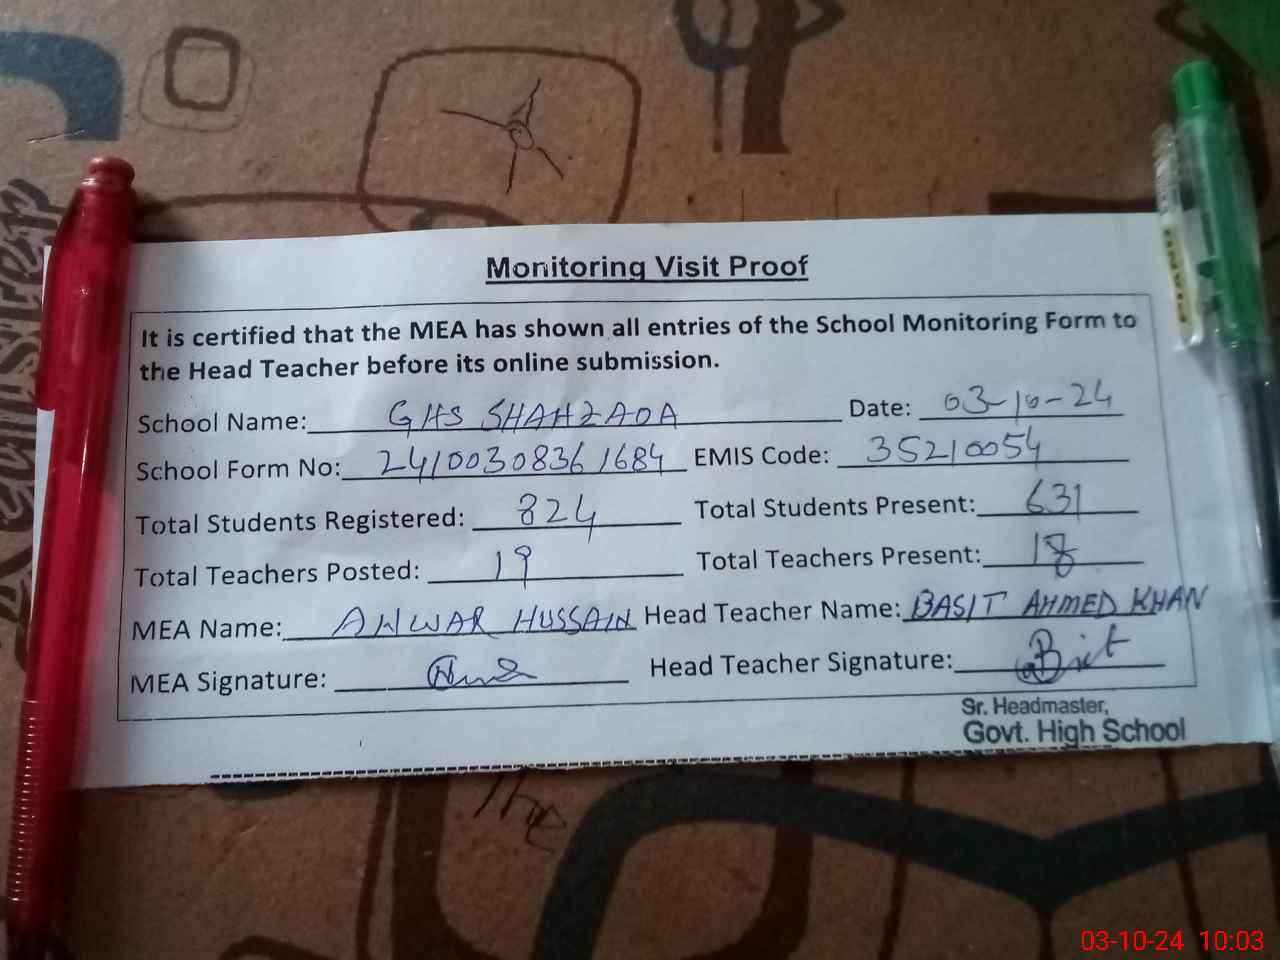 Monitoring Visit Proof
It is certified that the MEA has shown all entries of the School Monitoring Form to
the Head Teacher before its online submission.
School Name: GHS SHAHZADA Date: 03-10-24
School Form No: 24100308361684 EMIS Code: 35210054
Total Students Registered: 824 Total Students Present: 631
Total Teachers Posted: 19 Total Teachers Present: 18
MEA Name: ANWAR HUSSAIN Head Teacher Name: BASIT AHMED KHAN
MEA Signature: Head Teacher Signature:
Sr. Headmaster,
Govt. High School
03-10-24 10:03